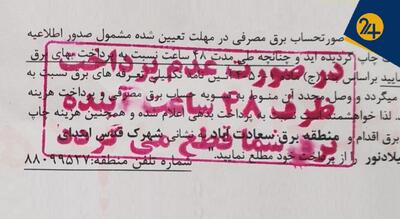 24
صورتحساب برق مصرفی در مهلت تعیین شده مشمول صدور اطلاعیه
چاپ گردیده اید و چنانچه طی مدت ۴۸ ساعت نسبت به پرداخت بهای برق
نمایید براساس
تعرفه های برق نسبت به
میگردد و وصل مجدد آن منوط به تسویه حساب برق مصرفی و پرداخت هزینه
لذا خواهشمند است
به پرداخت بدهی اعلام شده و همچنین هزینه چاپ
برق اقدام و
منطقه برق سعادت آباد به نشانی شهرک قدس انتهای
یلادنور را از پرداخت خود مطلع نمایید.
شماره تلفن منطقه: ۸۸۰۹۹۵۲۷
در صورت عدم پرداخت
ظرف ۴۸ ساعت آینده
برق شما قطع می گردد